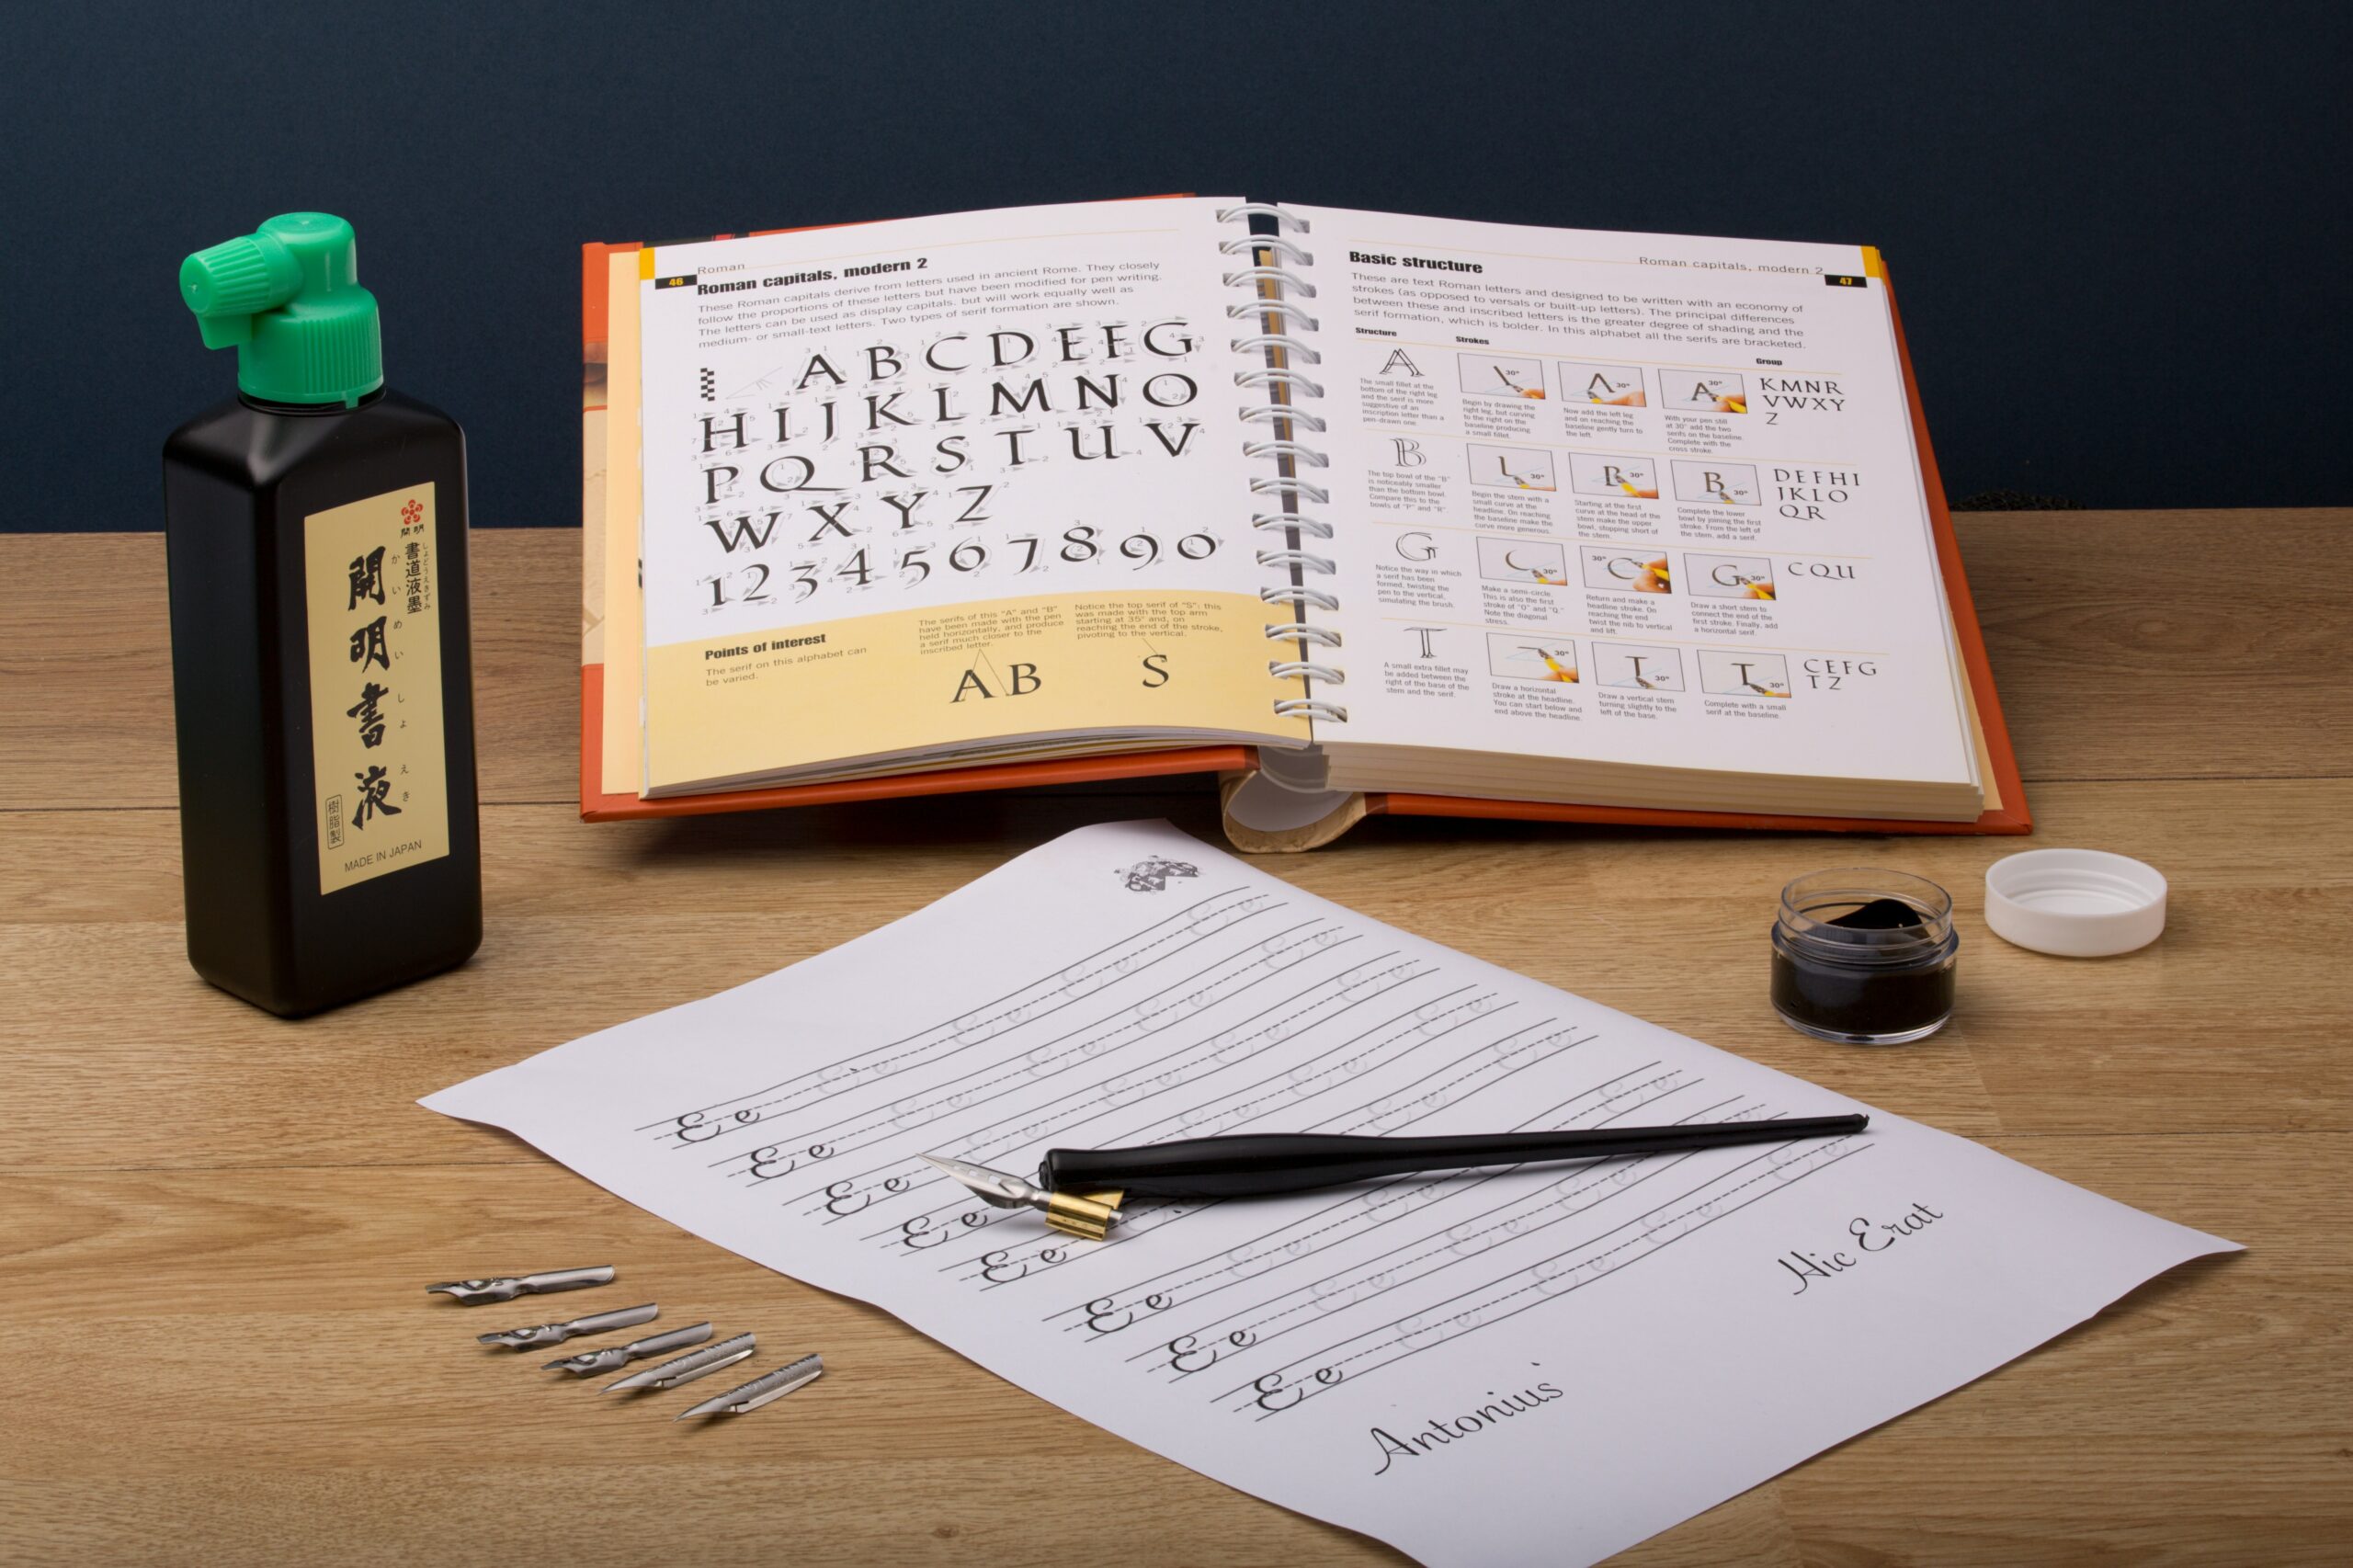 開明
書道液墨
しょどうえきずみ
開明書液
かいめいしょえき
樹脂製
MADE IN JAPAN
46
Roman
Roman capitals, modern 2
These Roman capitals derive from letters used in ancient Rome. They closely
follow the proportions of these letters but have been modified for pen writing.
The letters can be used as display capitals, but will work equally well as
medium- or small-text letters. Two types of serif formation are shown.
A B C D E F G
H I J K L M N O
P Q R S T U V
W X Y Z
1 2 3 4 5 6 7 8 9 0
Points of interest
The serif on this alphabet can
be varied.
The serifs of this "A" and "B"
have been made with the pen
held horizontally, and produce
a serif much closer to the
inscribed letter.
A B
Notice the top serif of "S": this
was made with the top arm
starting at 35° and, on
reaching the end of the stroke,
pivoting to the vertical.
S
Roman capitals, modern 2
47
Basic structure
These are text Roman letters and designed to be written with an economy of
strokes (as opposed to versals or built-up letters). The principal differences
between these and inscribed letters is the greater degree of shading and the
serif formation, which is bolder. In this alphabet all the serifs are bracketed.
Structure
Strokes
Group
A
The small fillet at the
bottom of the right leg
and the serif is more
suggestive of an
inscription letter than a
pen-drawn one.
30°
Begin by drawing the
right leg, but curving
to the right on the
baseline producing
a small fillet.
30°
Now add the left leg
and on reaching the
baseline gently turn to
the left.
30°
With your pen still
at 30° add the two
serifs on the baseline.
Complete with the
cross stroke
K M N R
V W X Y
Z
B
The top bowl of the "B"
is noticeably smaller
than the bottom bowl.
Compare this to the
bowls of "P" and "R"
30°
Begin the stem with a
small curve at the
headline. On reaching
the baseline make the
curve more generous.
30°
Starting at the first
curve at the head of the
stem make the upper
bowl, stopping short of
the stem.
30°
Complete the lower
bowl by joining the first
stroke. From the left of
the stem, add a serif.
D E F H I
J K L O
Q R
G
Notice the way in which
a serif has been
formed, twisting the
pen to the vertical,
simulating the brush.
30°
Make a semi-circle.
This is also the first
stroke of "O" and "Q."
Note the diagonal
stress.
30°
Return and make a
headline stroke. On
reaching the end
twist the nib to vertical
and lift.
30°
Draw a short stem to
connect the end of the
first stroke. Finally, add
a horizontal serif.
C Q U
T
A small extra fillet may
be added between the
right of the base of the
stem and the serif.
30°
Draw a horizontal
stroke at the headline.
You can start below and
end above the headline.
30°
Draw a vertical stem
turning slightly to the
left of the base.
30°
Complete with a small
serif at the baseline.
C E F G
T Z
E e E e E e E e E e
E e E e E e E e E e
E e E e E e E e
E e E e E e E e
E e E e E e
E e E e E e E e
E e E e E e E e
E e E e E e E e E e
Antonius Hic Erat